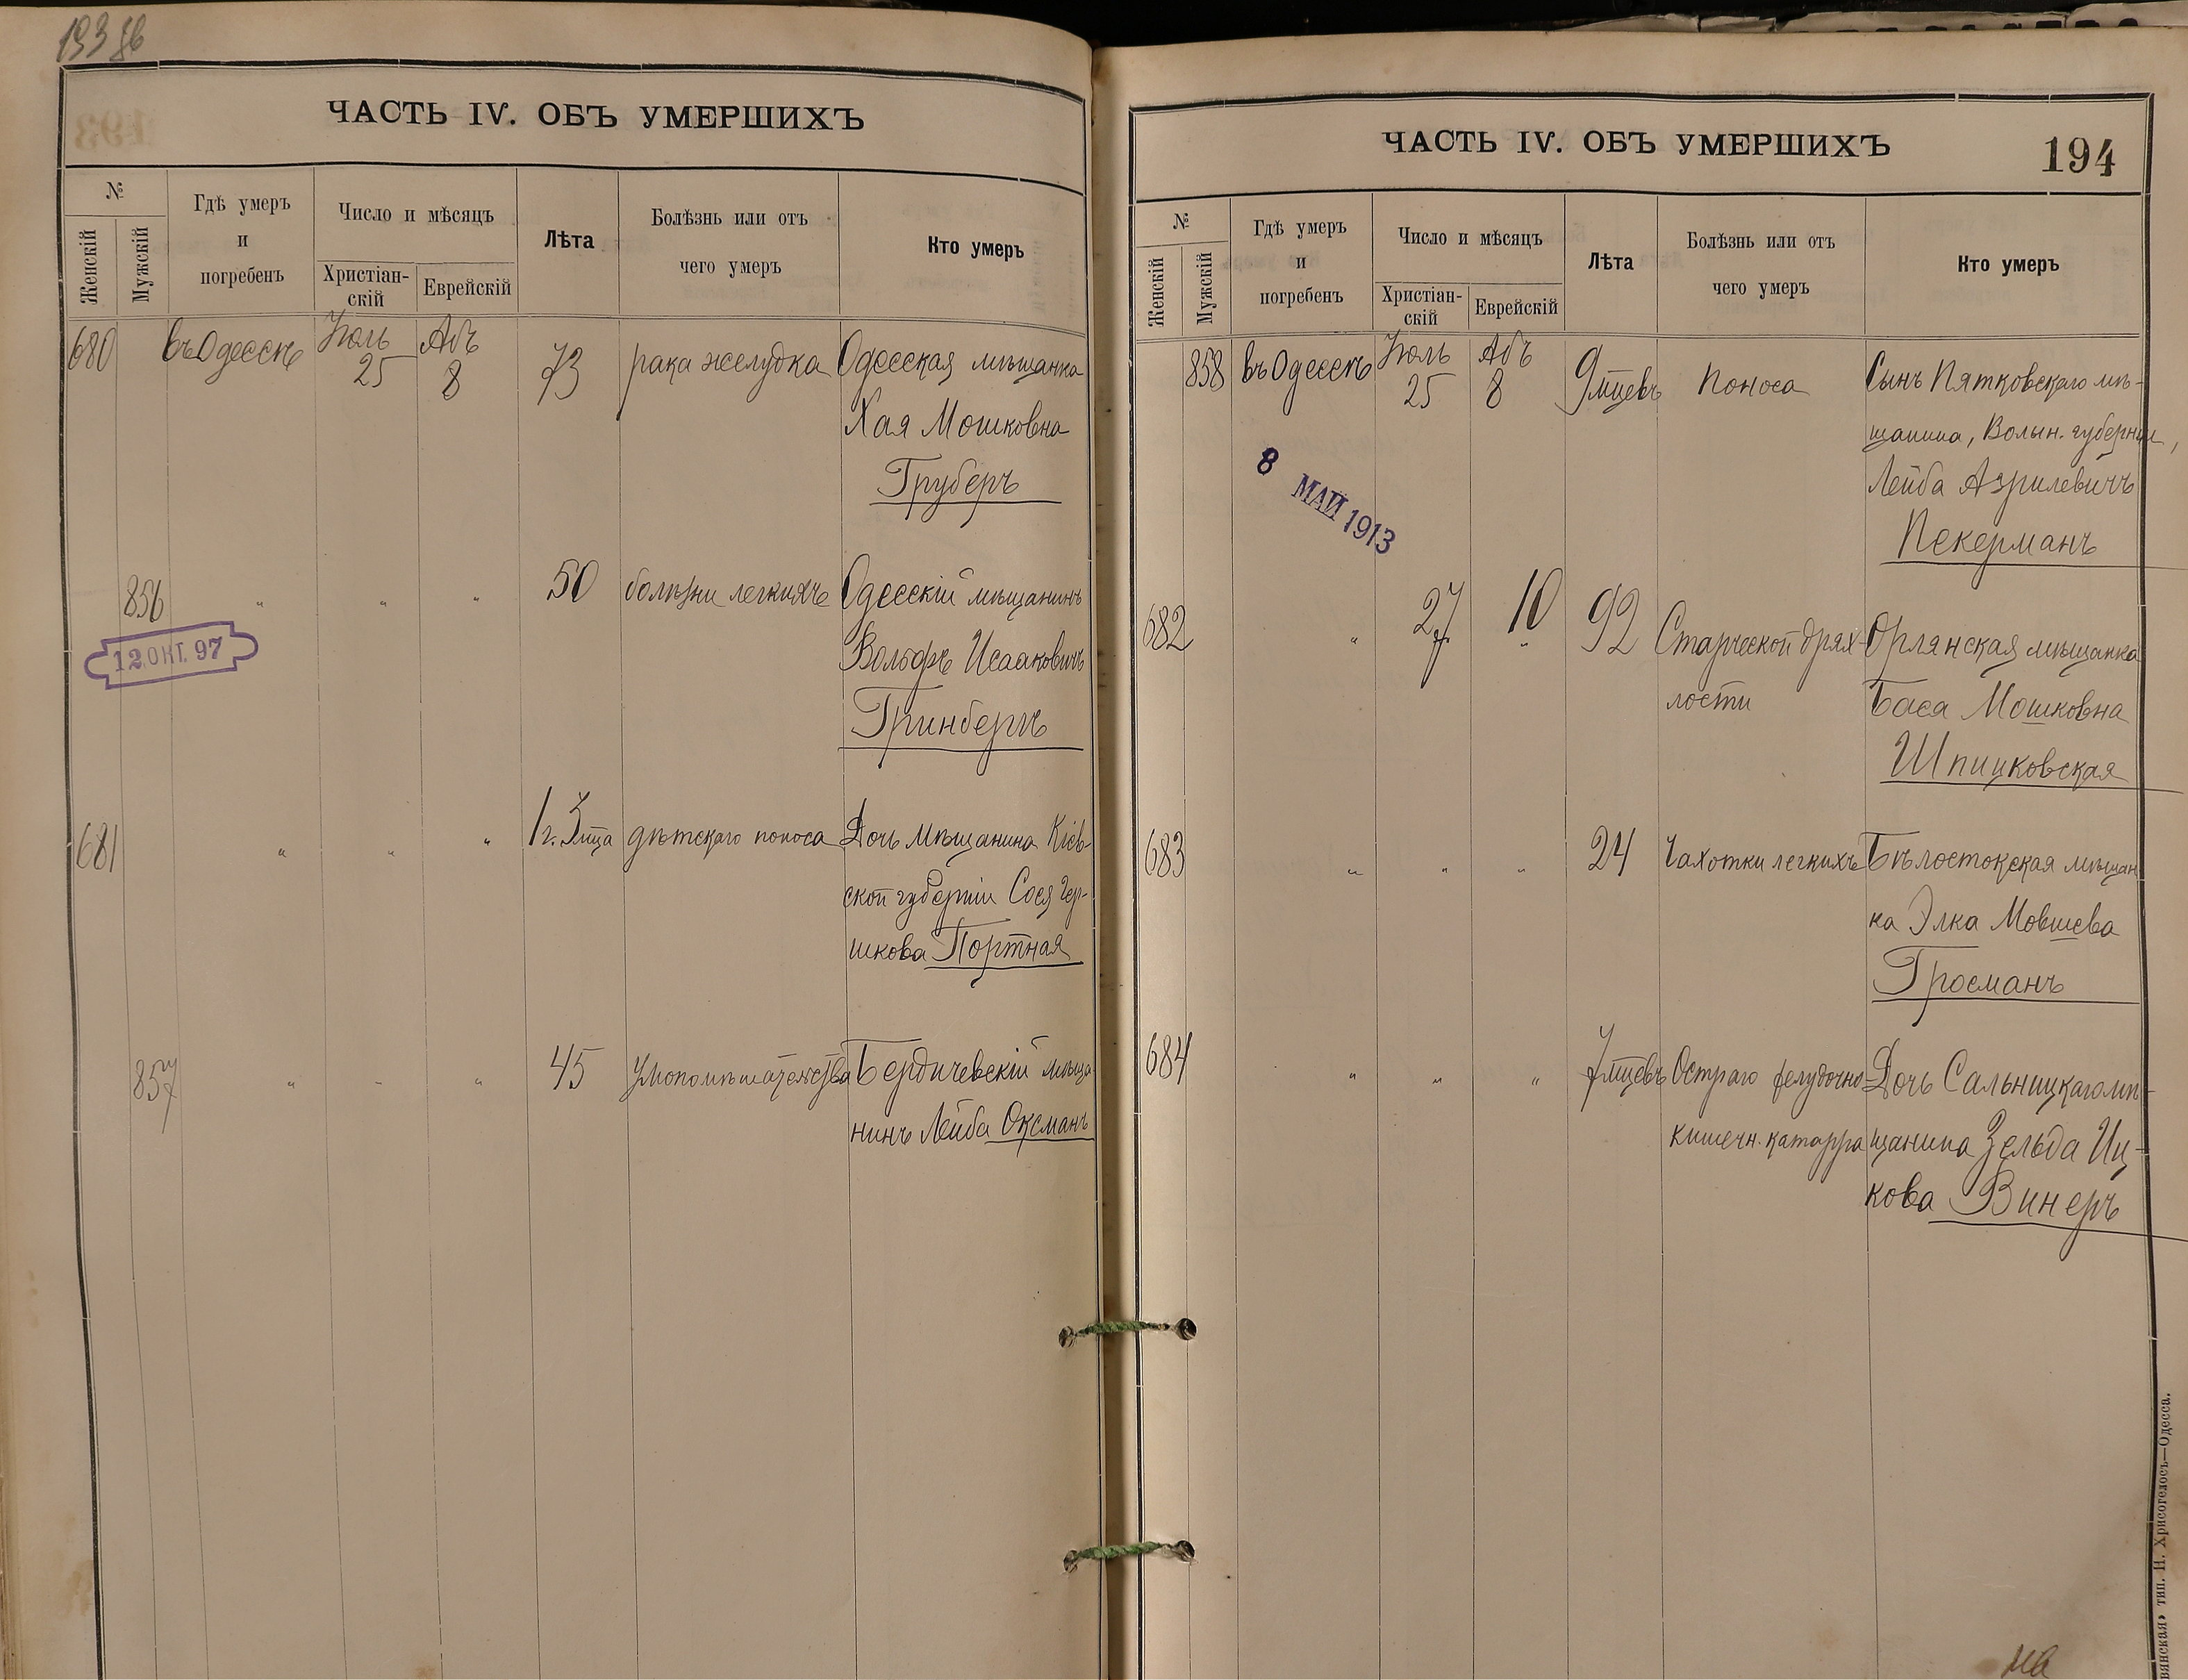 193 об
ЧАСТЬ IV. ОБЪ УМЕРШИХЪ
№
Женскій
Мужскій
Гдѣ умеръ
и
погребенъ
Число и мѣсяцъ
Христіан-
скій
Еврейскій
Лѣта
Болѣзнь или отъ
чего умеръ
Кто умеръ
680 въ Одессѣ Іюль Абъ 73 рака желудка Одесская мѣщанка
25 8
Хая Мошковна
Груберъ
856 " " " 50 болѣзни легкихъ Одесскій мѣщанинъ
12.ОКТ.97
Вольфъ Исааковичъ
Гринбергъ
681 " " " 1 г. 3 мца дѣтскаго поноса Дочь мѣщанина Кіев-
ской губерніи Сося Гер-
шкова Портная
857 " " " 45 умопомѣшательства Бердичевскій мѣща-
нинъ Лейба Оксманъ
ЧАСТЬ IV. ОБЪ УМЕРШИХЪ
194
№
Женскій
Мужскій
Гдѣ умеръ
и
погребенъ
Число и мѣсяцъ
Христіан-
скій
Еврейскій
Лѣта
Болѣзнь или отъ
чего умеръ
Кто умеръ
858 въ Одессѣ Іюль Абъ 9 мцевъ поноса Сынъ Пятковскаго мѣ-
25 8
щанина, Волын. губерніи,
Лейба Азрилевичъ
Пекерманъ
8 МАЙ 1913
682 " 27 10 92 Старческой дрях- Орлянская мѣщанка
" "
лости Бася Мошковна
Шпицковская
683 " " " 24 Чахотки легкихъ Бѣлостокская мѣщан
ка Элка Мовшева
Гросманъ
684 " " " 7 мцевъ Остраго желудочно- Дочь Сальницкаго мѣ-
кишечн. катарра щанина Зельда Иц-
кова Винеръ
вянская» тип. Н. Хрисогелосъ—Одесса.